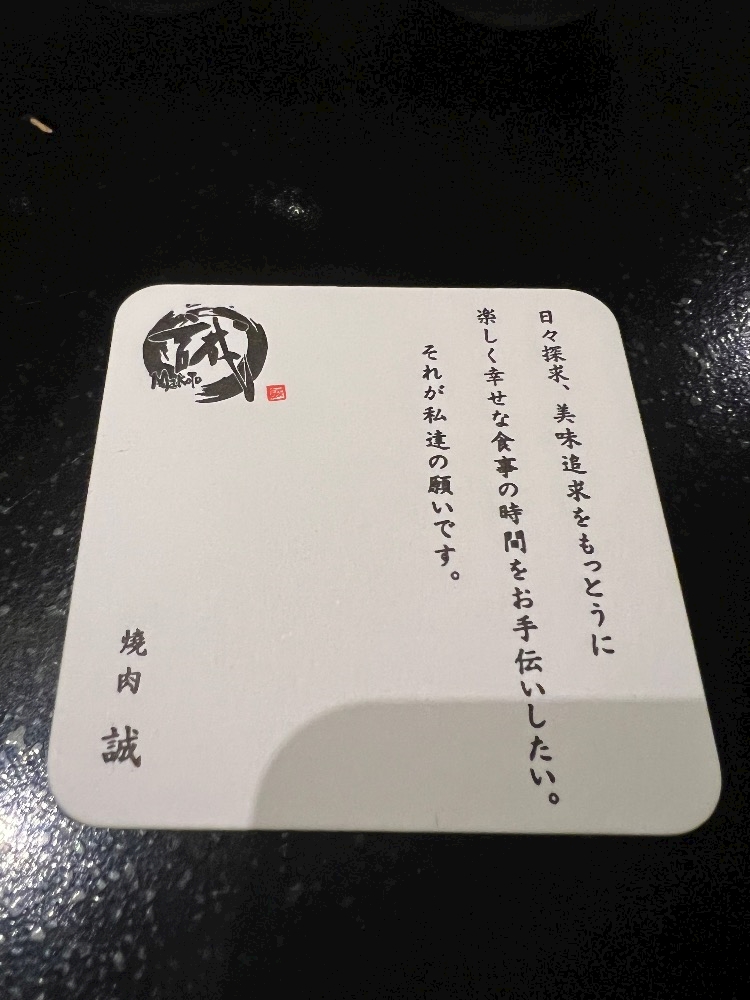 日々探求、美味追求をもっとうに
楽しく幸せな食事の時間をお手伝いしたい。
それが私達の願いです。
誠
Makoto
焼肉 誠